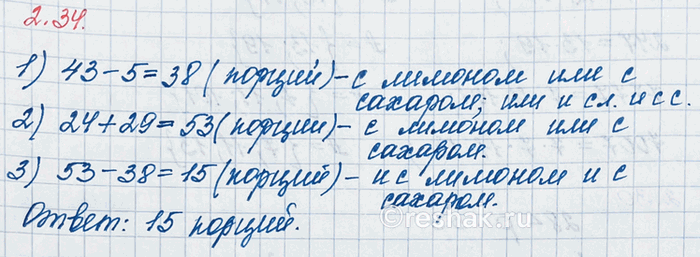 2.34.
1) 43-5=38 (порций) - с лимоном или с
сахаром; или и с л. и с с.
2) 24+29=53 (порции) - с лимоном или с
сахаром.
3) 53-38=15 (порций) - и с лимоном и с
сахаром.
Ответ: 15 порций.
©reshak.ru